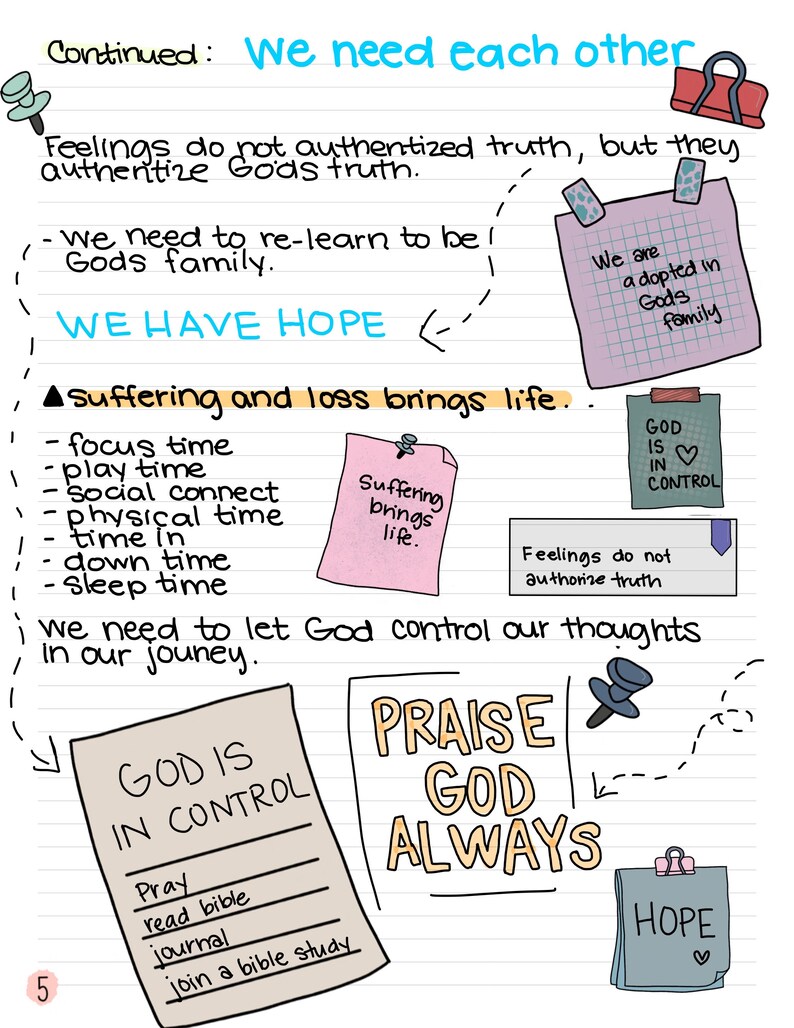 Continued: We need each other
Feelings do not authentized truth, but they
authentize Gods truth.
We are
adopted in
Gods
family
- We need to re-learn to be
Gods family.
WE HAVE HOPE
▲ Suffering and loss brings life. .
- focus time
- play time
- social connect
- physical time
- time in
- down time
- sleep time
Suffering
brings
life.
GOD
IS
IN ♡
CONTROL
Feelings do not
authorize truth
We need to let God control our thoughts
in our jouney.
GOD IS
IN CONTROL
Pray
read bible
journal
join a bible study
PRAISE
GOD
ALWAYS
HOPE
♡
5